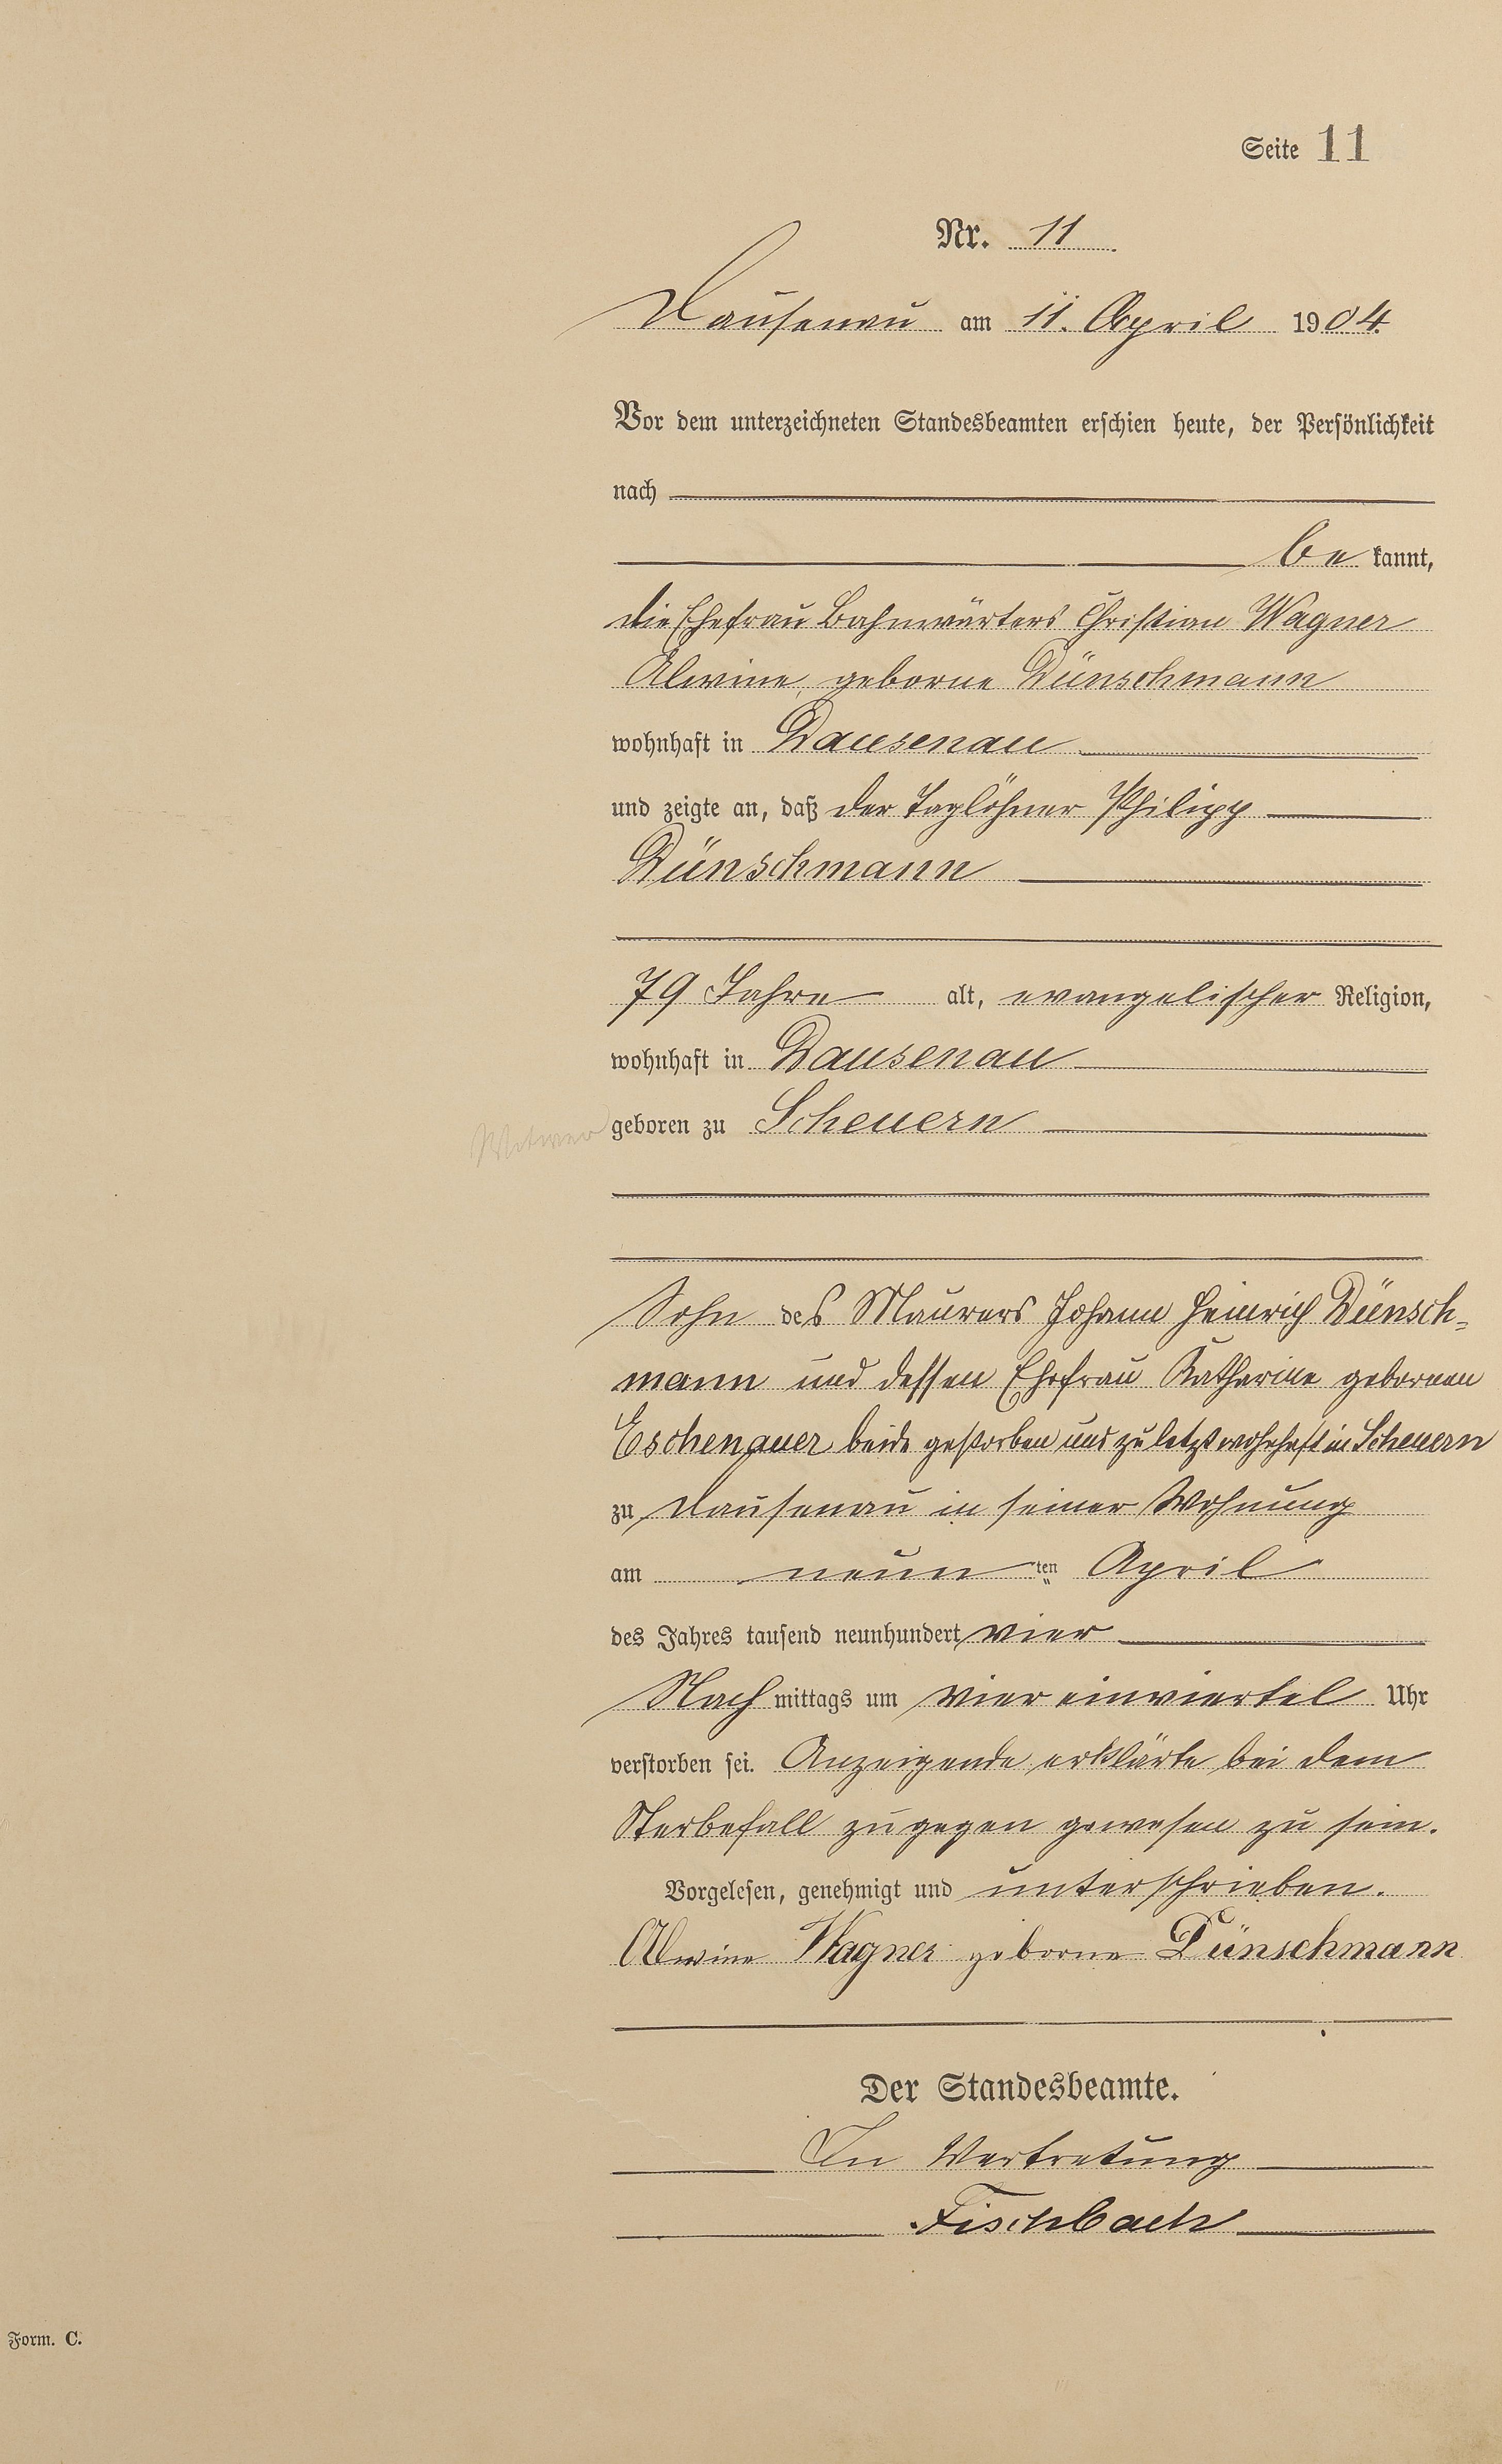 Seite 11
Nr. 11
Dausenau am 11. April 1904
Vor dem unterzeichneten Standesbeamten erschien heute, der Persönlichkeit
nach
be kannt,
die Ehefrau Bahnwärters Christian Wagner
Alwine, geborne Dünschmann
wohnhaft in Dausenau
und zeigte an, daß der Taglöhner Philipp
Dünschmann
79 Jahre alt, evangelischer Religion,
wohnhaft in Dausenau
Witwer geboren zu Scheuern
Sohn des Maurers Johann Heinrich Dünsch-
mann und dessen Ehefrau Katharine gebornen
Eschenauer beide gestorben und zuletzt wohnhaft in Scheuern
zu Dausenau in seiner Wohnung
am neun ten April
des Jahres tausend neunhundert vier
Nach mittags um vier einviertel Uhr
verstorben sei. Anzeigende erklärte bei dem
Sterbefall zugegen gewesen zu sein.
Vorgelesen, genehmigt und unterschrieben.
Alwine Wagner geborne Dünschmann
Der Standesbeamte.
In Vertretung
Fischbach
Form. C.